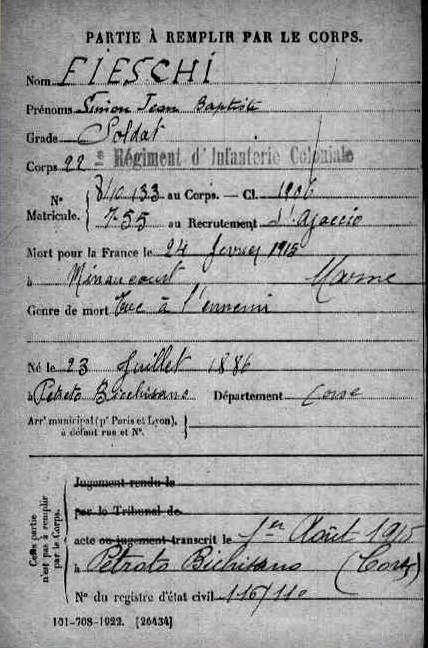 PARTIE À REMPLIR PAR LE CORPS.
Nom FIESCHI
Prénoms Simon Jean Baptiste
Grade Soldat
Corps 22e Régiment d'Infanterie Coloniale
N° Matricule. { 8/10.133 au Corps. — Cl. 1906
755 au Recrutement d'Ajaccio
Mort pour la France le 24 fevrier 1915
à Minaucourt Marne
Genre de mort Tué à l'ennemi
Né le 23 Juillet 1886
à Petreto Bicchisano Département Corse
Arrt municipal (pr Paris et Lyon), à défaut rue et N°. }
Cette partie n'est pas à remplir par le Corps.
Jugement rendu le
par le Tribunal de
acte ou jugement transcrit le 1er Août 1915
à Petroto Bichisano (Corse)
N° du registre d'état civil 116/110
101-708-1922. [26434]